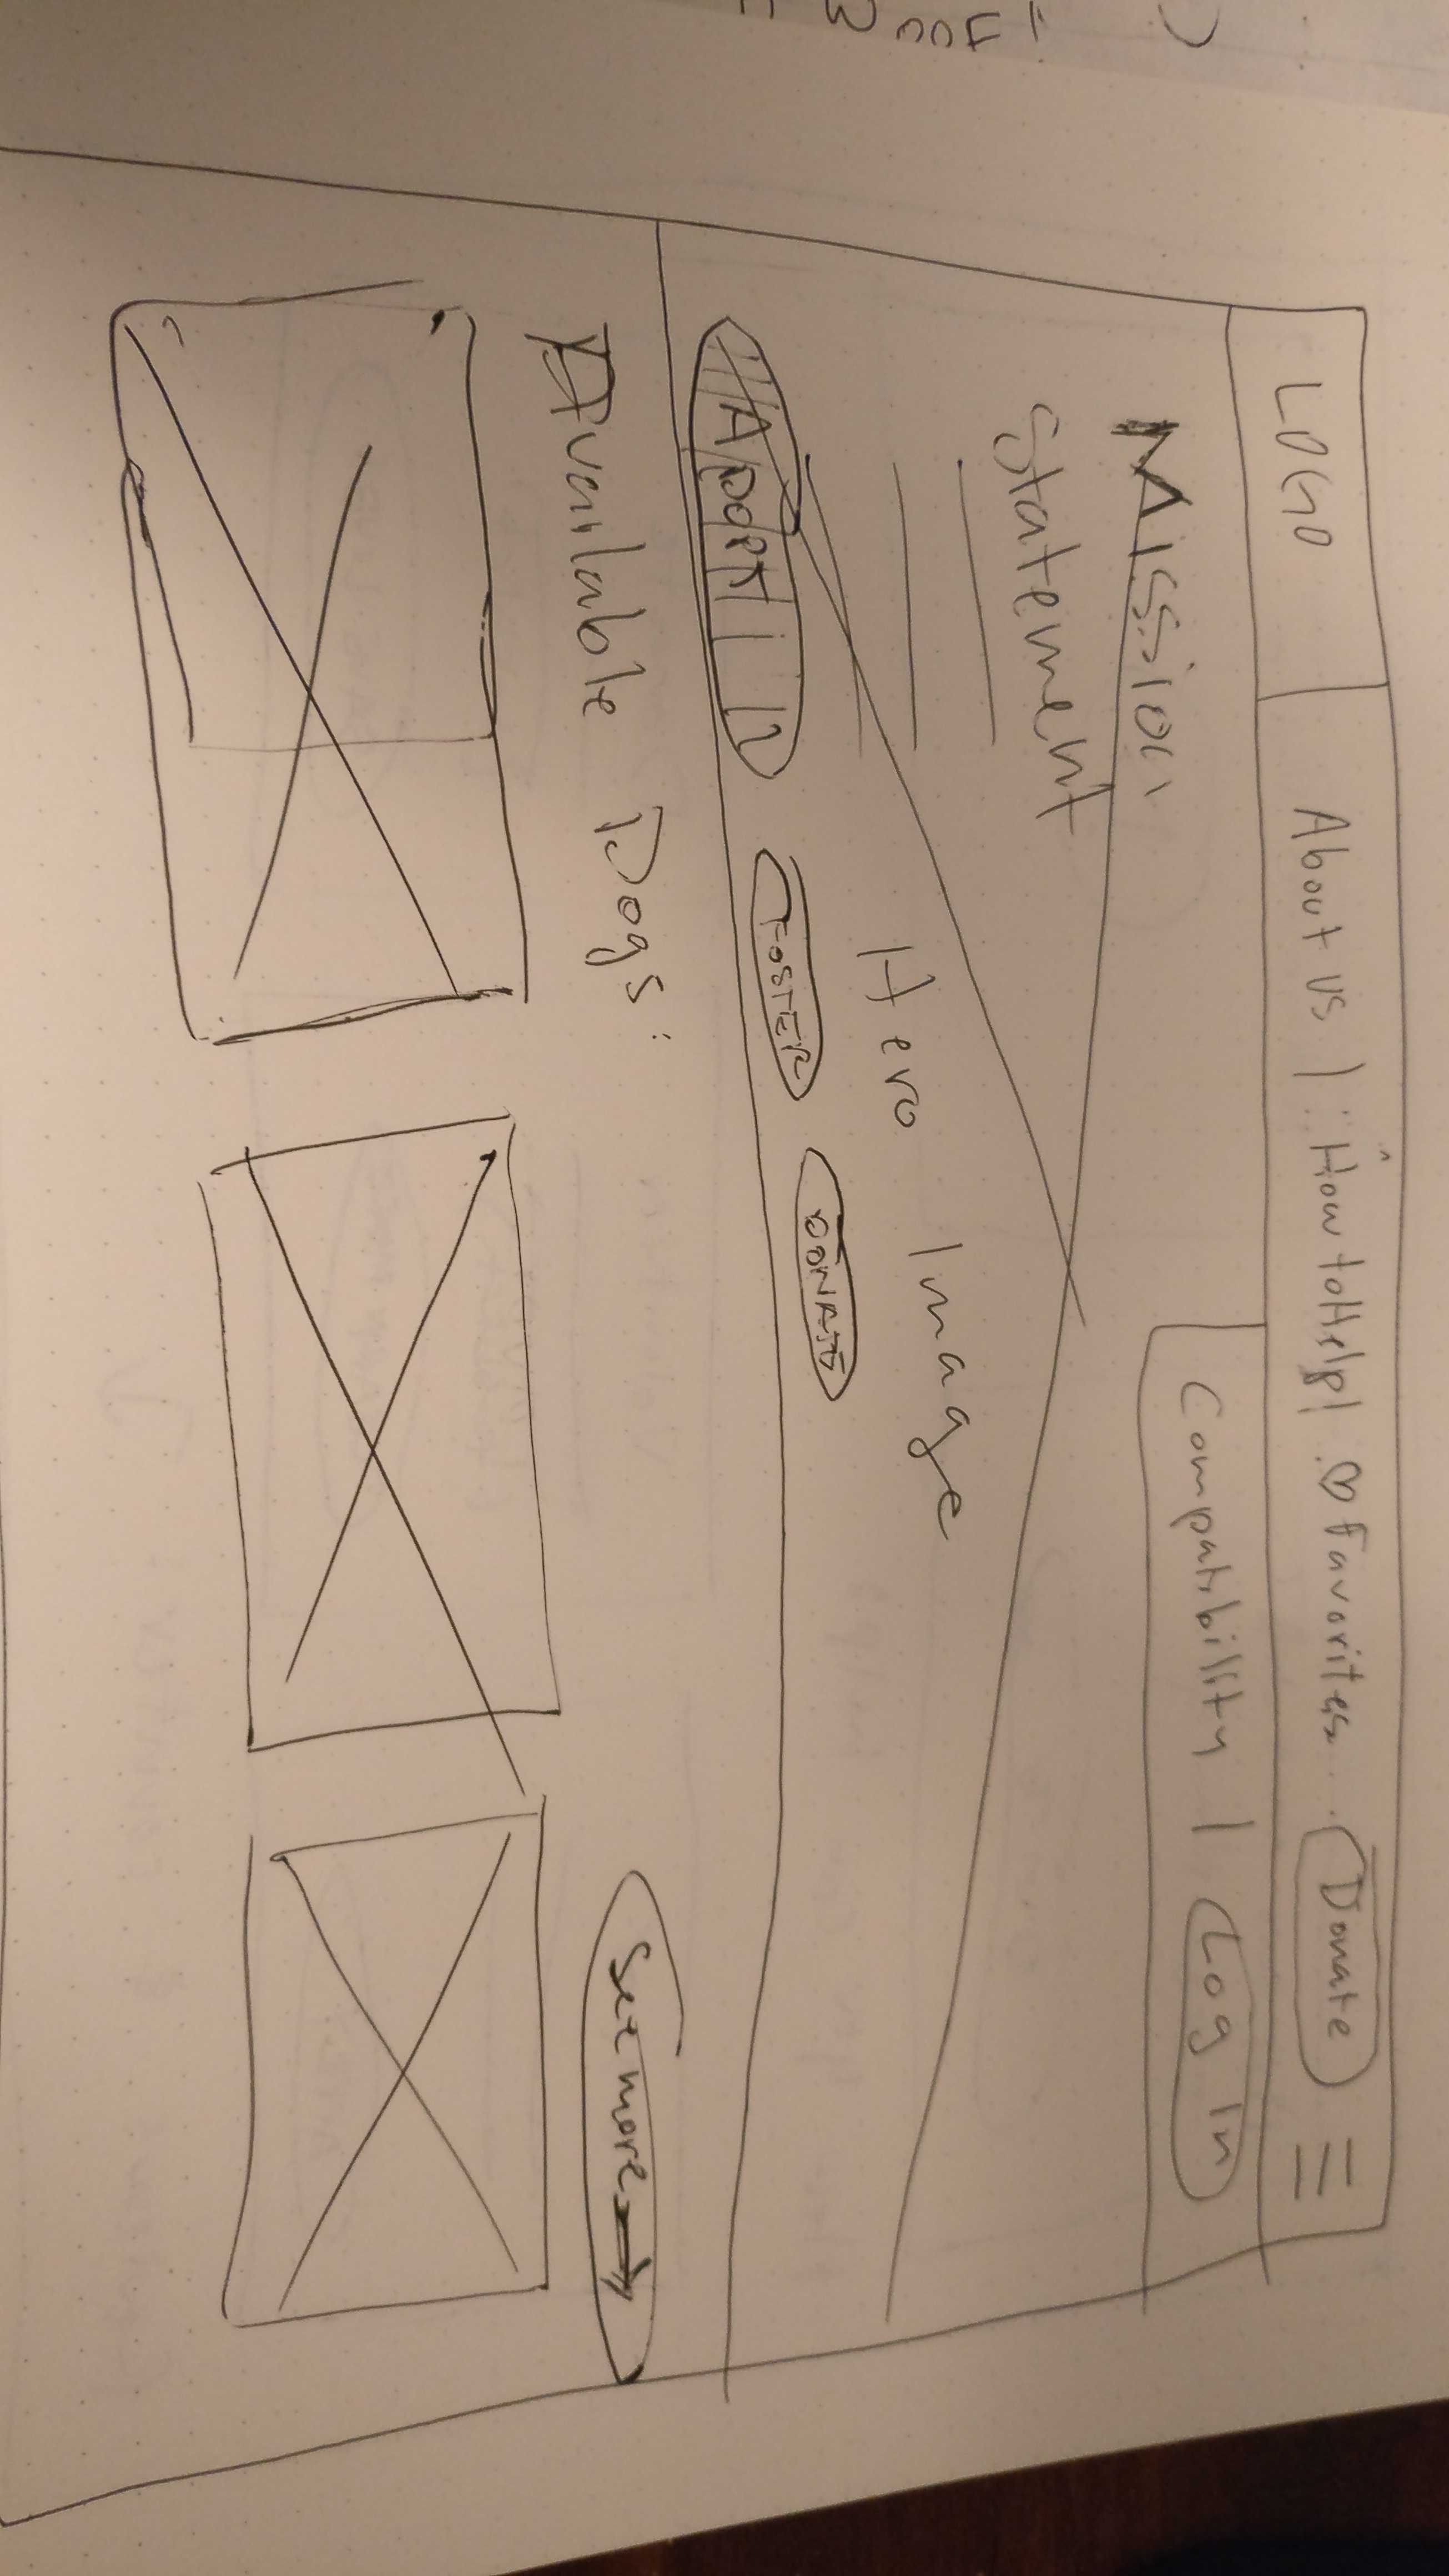 LOGO
About Us | How to Help | ♡ Favorites Donate
Compatibility | Log In
Mission
Statement
Hero Image
ADOPT FOSTER DONATE
Available Dogs:
See more →